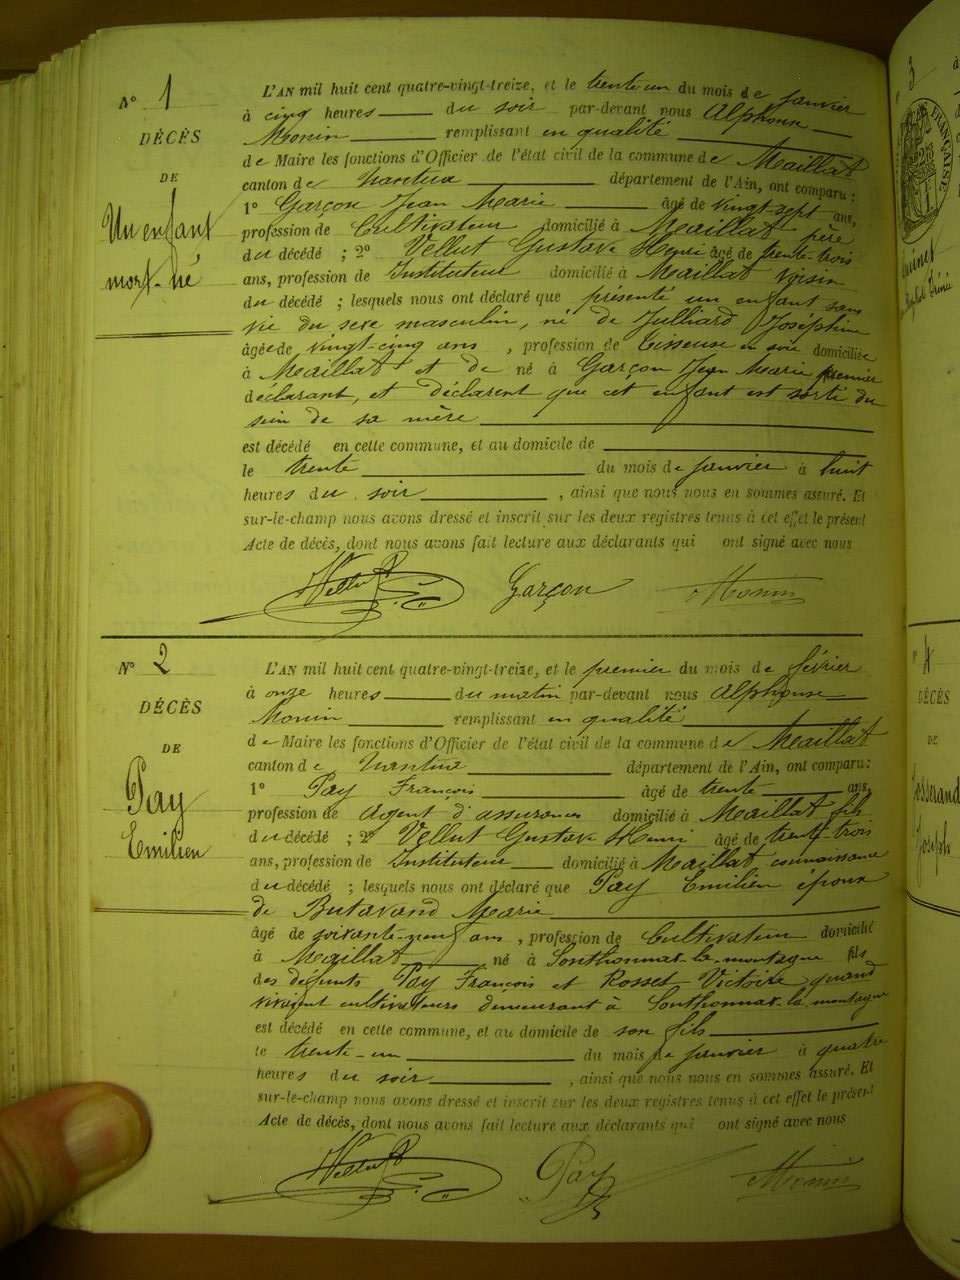 N° 1
DÉCÈS
DE
Un enfant
mort-né
L'AN mil huit cent quatre-vingt-treize, et le trente un du mois de janvier
à cinq heures du soir par-devant nous Alphonse
Monin remplissant en qualité
de Maire les fonctions d'Officier de l'état civil de la commune de Maillat
canton de Nantua département de l'Ain, ont comparu :
1° Garçon Jean Marie âgé de vingt-sept ans,
profession de Cultivateur domicilié à Maillat père
du décédé ; 2° Vellut Gustave Henri âgé de trente-trois
ans, profession de Instituteur domicilié à Maillat voisin
du décédé ; lesquels nous ont déclaré que présenté un enfant sans
vie du sexe masculin, né de Julliard Joséphine
âgée de vingt-cinq ans, profession de Tisseuse en soie domiciliée
à Maillat et de né à Garçon Jean Marie premier
déclarant, et déclarent que cet enfant est sorti du
sein de sa mère
est décédé en cette commune, et au domicile de
le trente du mois de janvier à huit
heures du soir, ainsi que nous nous en sommes assuré. Et
sur-le-champ nous avons dressé et inscrit sur les deux registres tenus à cet effet le présent
Acte de décès, dont nous avons fait lecture aux déclarants qui ont signé avec nous
Vellut Garçon Monin
N° 2
DÉCÈS
DE
Pay
Emilien
L'AN mil huit cent quatre-vingt-treize, et le premier du mois de février
à onze heures du matin par-devant nous Alphonse
Monin remplissant en qualité
de Maire les fonctions d'Officier de l'état civil de la commune de Maillat
canton de Nantua département de l'Ain, ont comparu :
1° Pay François âgé de trente ans,
profession de Agent d'assurances domicilié à Maillat fils
du décédé ; 2° Vellut Gustave Henri âgé de trente trois
ans, profession de Instituteur domicilié à Maillat connaissance
du décédé ; lesquels nous ont déclaré que Pay Emilien époux
de Butavand Marie
âgé de soixante-neuf ans, profession de Cultivateur domicilié
à Maillat né à Sonthonnax-la-montagne fils
des défunts Pay François et Rosset Victoire quand
vivaient cultivateurs demeurant à Sonthonnax-la-montagne
est décédé en cette commune, et au domicile de son fils
le trente-un du mois de janvier à quatre
heures du soir, ainsi que nous nous en sommes assuré. Et
sur-le-champ nous avons dressé et inscrit sur les deux registres tenus à cet effet le présent
Acte de décès, dont nous avons fait lecture aux déclarants qui ont signé avec nous
Vellut Pay Monin
3
N° 4
DÉCÈS
DE
Josserand
Joseph